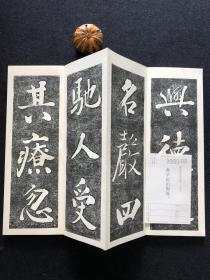 興德
名聲四
馳人受
其療忽